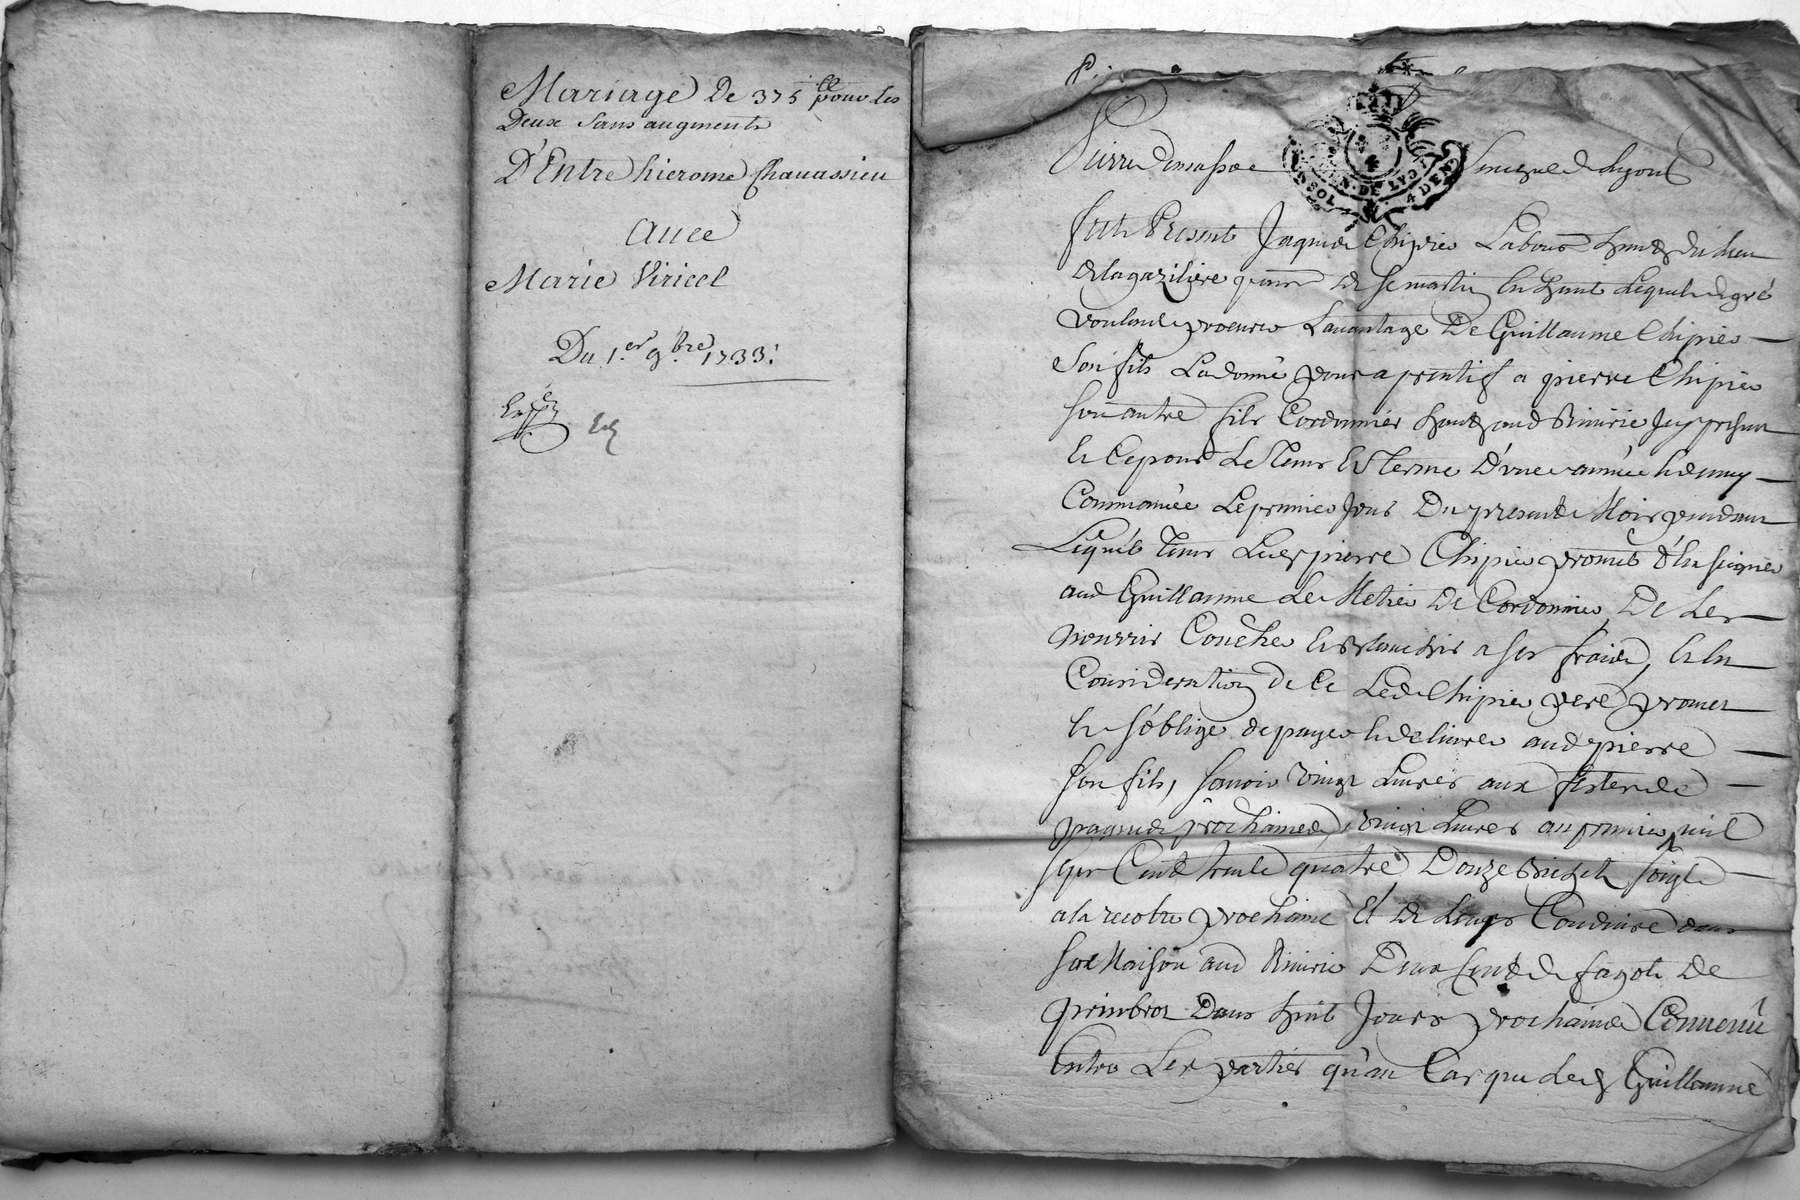 Mariage De 375 ll pour les
Deux sans augment
D'Entre hierome Chauassieu
Auec
Marie Viricel
Du 1.er 9.bre 1733.
GEN. DE LYON
SOL 4 DEN
Senechal de Lyon
fut Present Jaques Chipier Laboureur du lieu
de St martin En haut Lequel de gré
voulant procurer Lauantage De Guillaume Chipier
Son fils La donné pour aprentif a pierre Chipier
Son autre fils Cordonnier Jcy present
Et Ce pour Le Tems Et Terme D'vne année Et demy
Commancée Le premier Jour Du present Mois pendant
Lequel Tems Led pierre Chipier promet d'Enseigner
aud Guillaume Le Metier De Cordonnier, De Le
nourrir Coucher Et Blanchir a ses fraix, Et En
Consideration De Ce Led Chipier pere promet
Et s'oblige de payer Et deliurer aud pierre
Son fils, sçauoir vingt Liures aux festes de
paques prochaines, vingt Liures au premier mil
sept Cent trente quatre Douze Bichets soigle
a la recolte prochaine Et de Conduire dans
sa Maison aud Deux Cent de fagots De
Dans huit Jours prochains Conuenu
Entre Les parties qu'au Cas que Led Guillaume